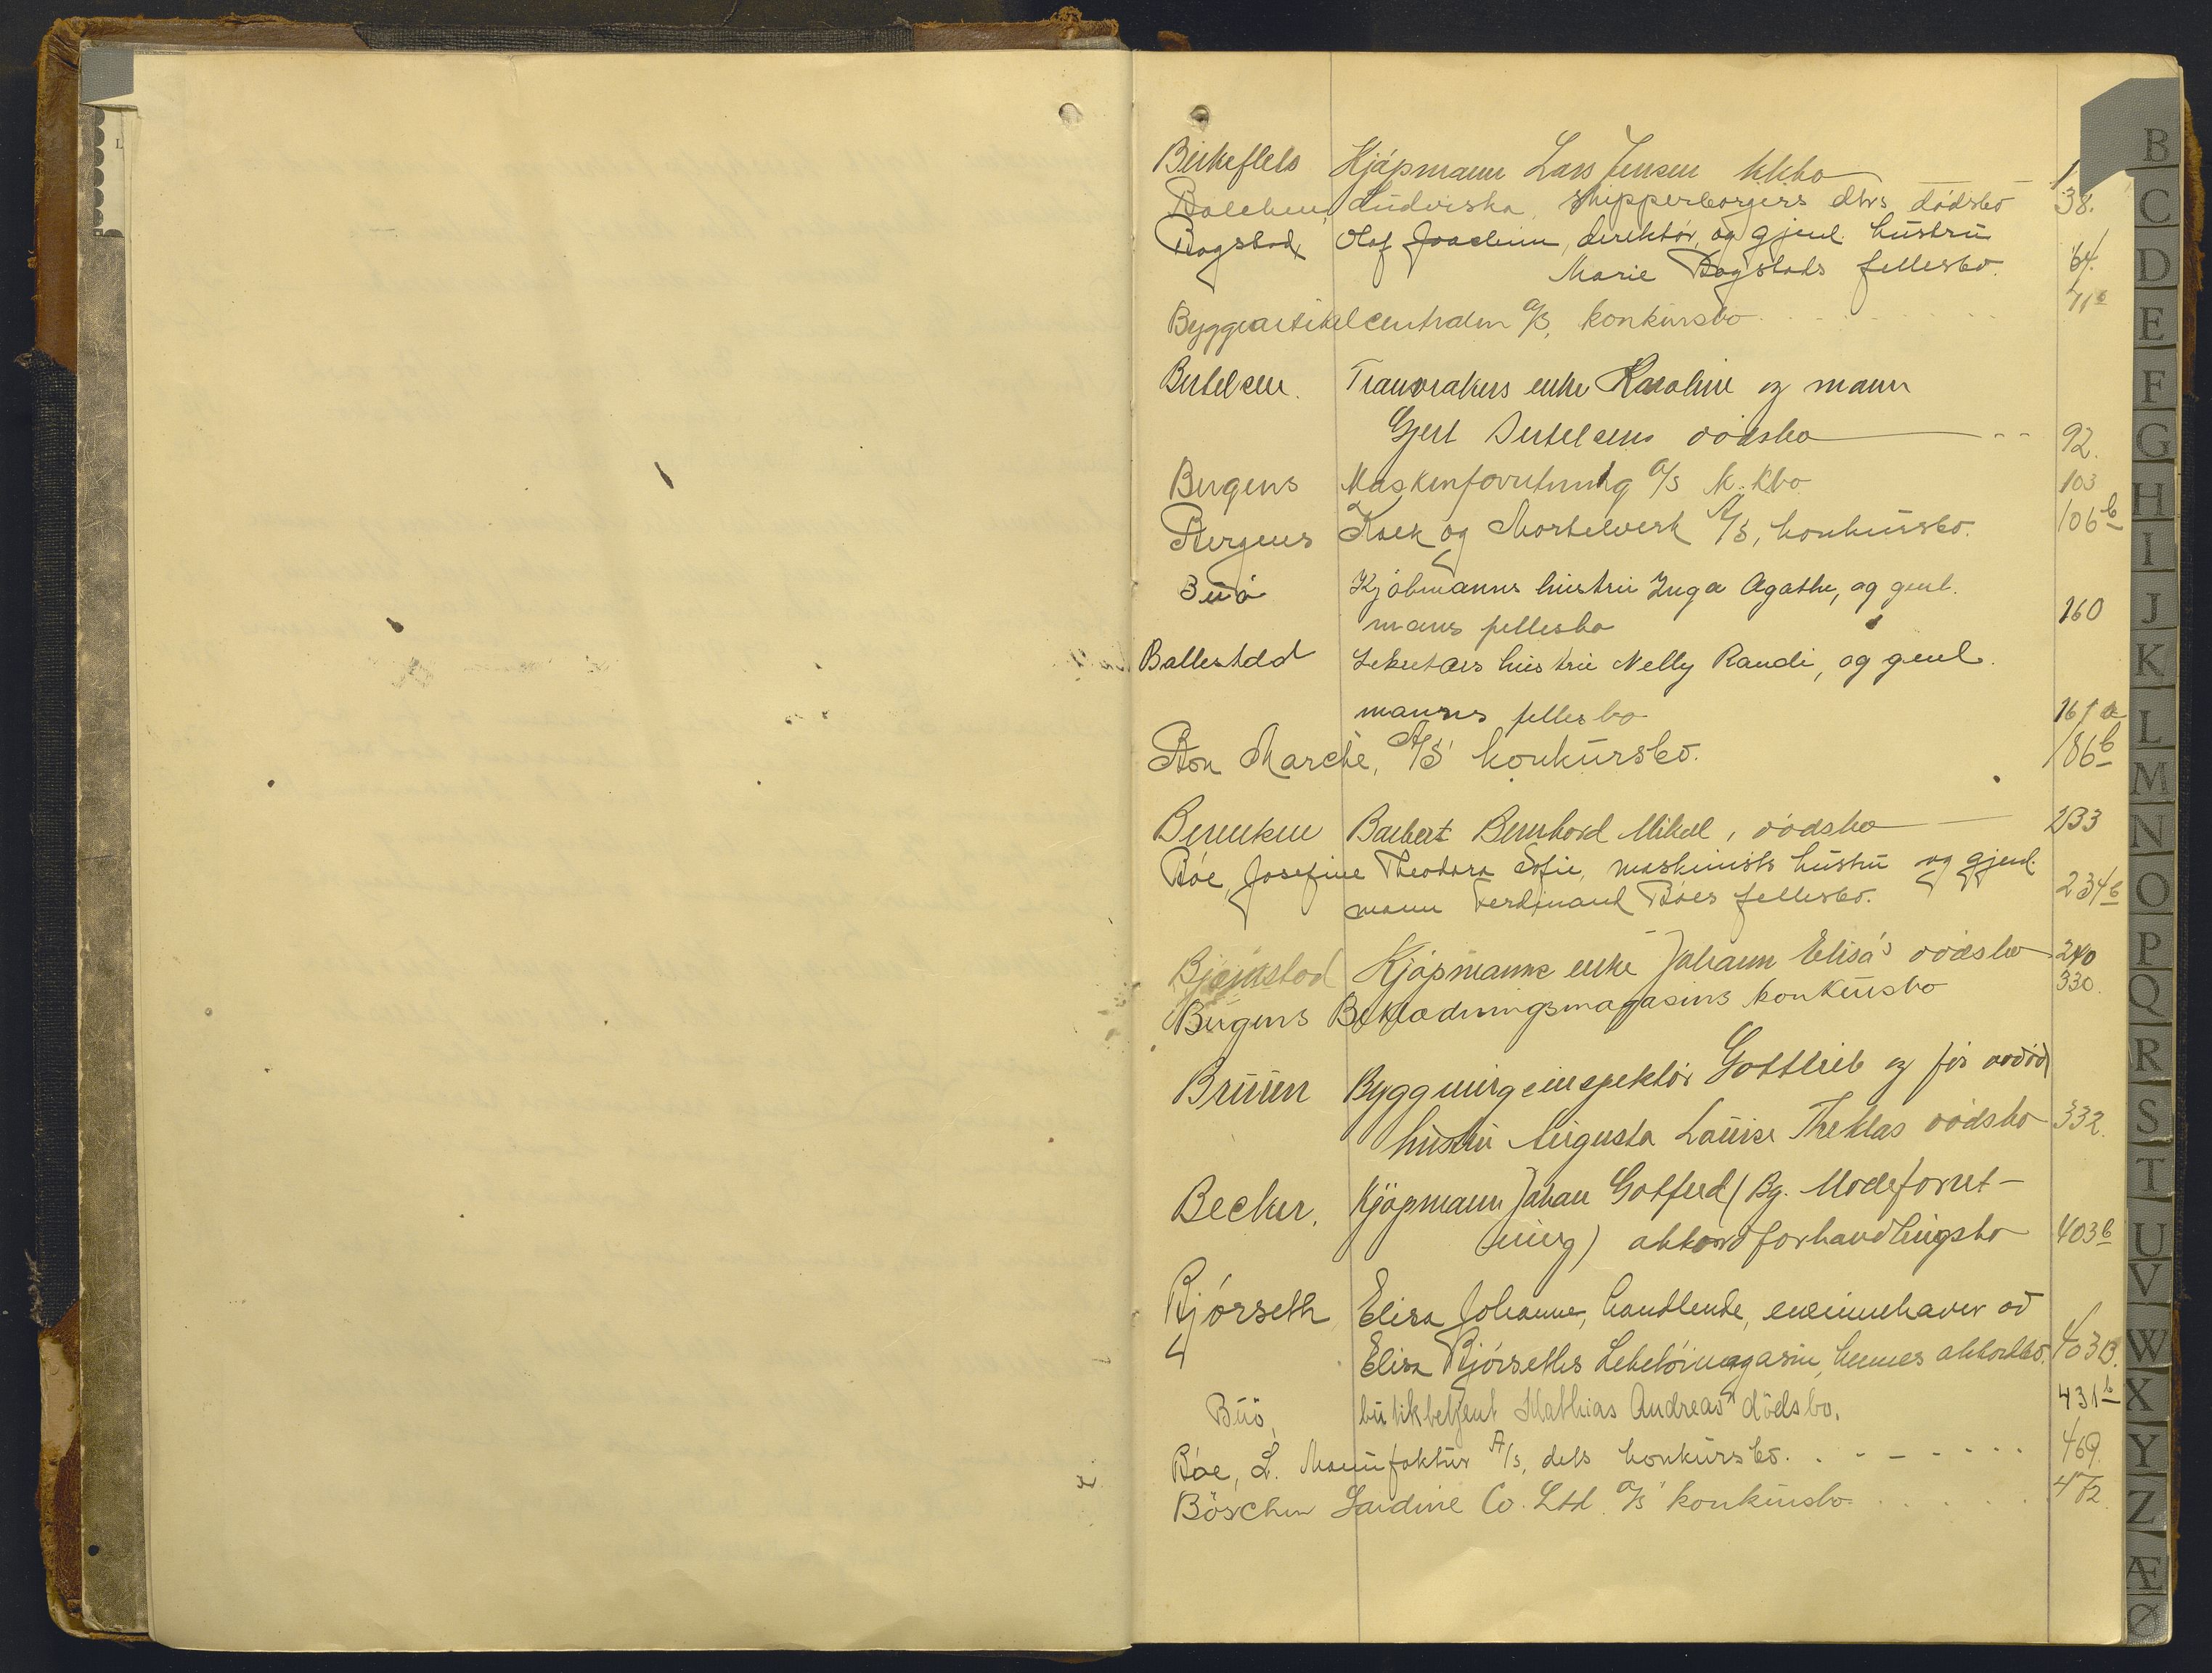 Birkeflets Kjøpmann Lars Jensen kkbo 1
Balchen, Ludviska, skipperborgers dtrs dødsbo 38.
Bagstad, Olaf Joachim, direktør, og gjenl. hustru
Marie Bagstads fellesbo. 64.
Byggeartikelcentralen A/S, konkursbo 71b
Bertelsen. Tranvrakers enke Karoline og mann
Gjert Bertelsens dødsbo 92.
Bergens Maskinforretning A/S k.kbo 103
Bergens Kalk og Mørtelverk A/S, konkursbo. 106b
Buø Kjøbmanns hustru Inga Agathe, og genl.
manns fellesbo 160
Ballestad Sekretærs hustru Nelly Randi, og genl.
manns fellesbo 161a
Bon Marché, A/S konkursbo. 186b
Bernhard Mikal, dødsbo 233
Bøe, Josefine Theodora Sofie, maskinists hustru og gjenl.
mann Ferdinand Bøes fellesbo. 234b
Bjørnstad Kjøpmanns enke Johann Elisa's dødsbo 240
Bergens Beklædningsmagasins konkursbo 330.
Bruun Bygningsinspektør Gottlieb og før avdød
hustru Augusta Louise Theklas dødsbo 332.
Becker, Kjøpmann Johan Gotfred (Bg. Modeforret-
ning) akkordforhandlingsbo 403b
Bjørseth Elisa Johanne, handlende, eneinnehaver av
Elisa Bjørseths Leketøimagasin, hennes akkordbo. 403B.
Buø, butikbetjent Mathias Andreas' dødsbo. 431b
Bøe, L. Manufaktur A/S, dets konkursbo. 469.
Bøschen Sardine Co. Ltd. A/S' konkursbo 472.
B
C
D
E
F
G
H
I
J
K
L
M
N
O
P
Q
R
S
T
U
V
W
X
Y
Z
Æ
Ø